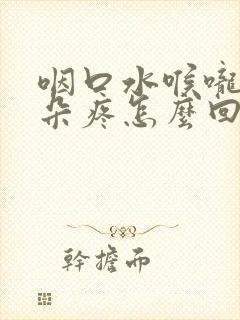 咽口水喉嚨
朵疼怎麼回
幹擔而